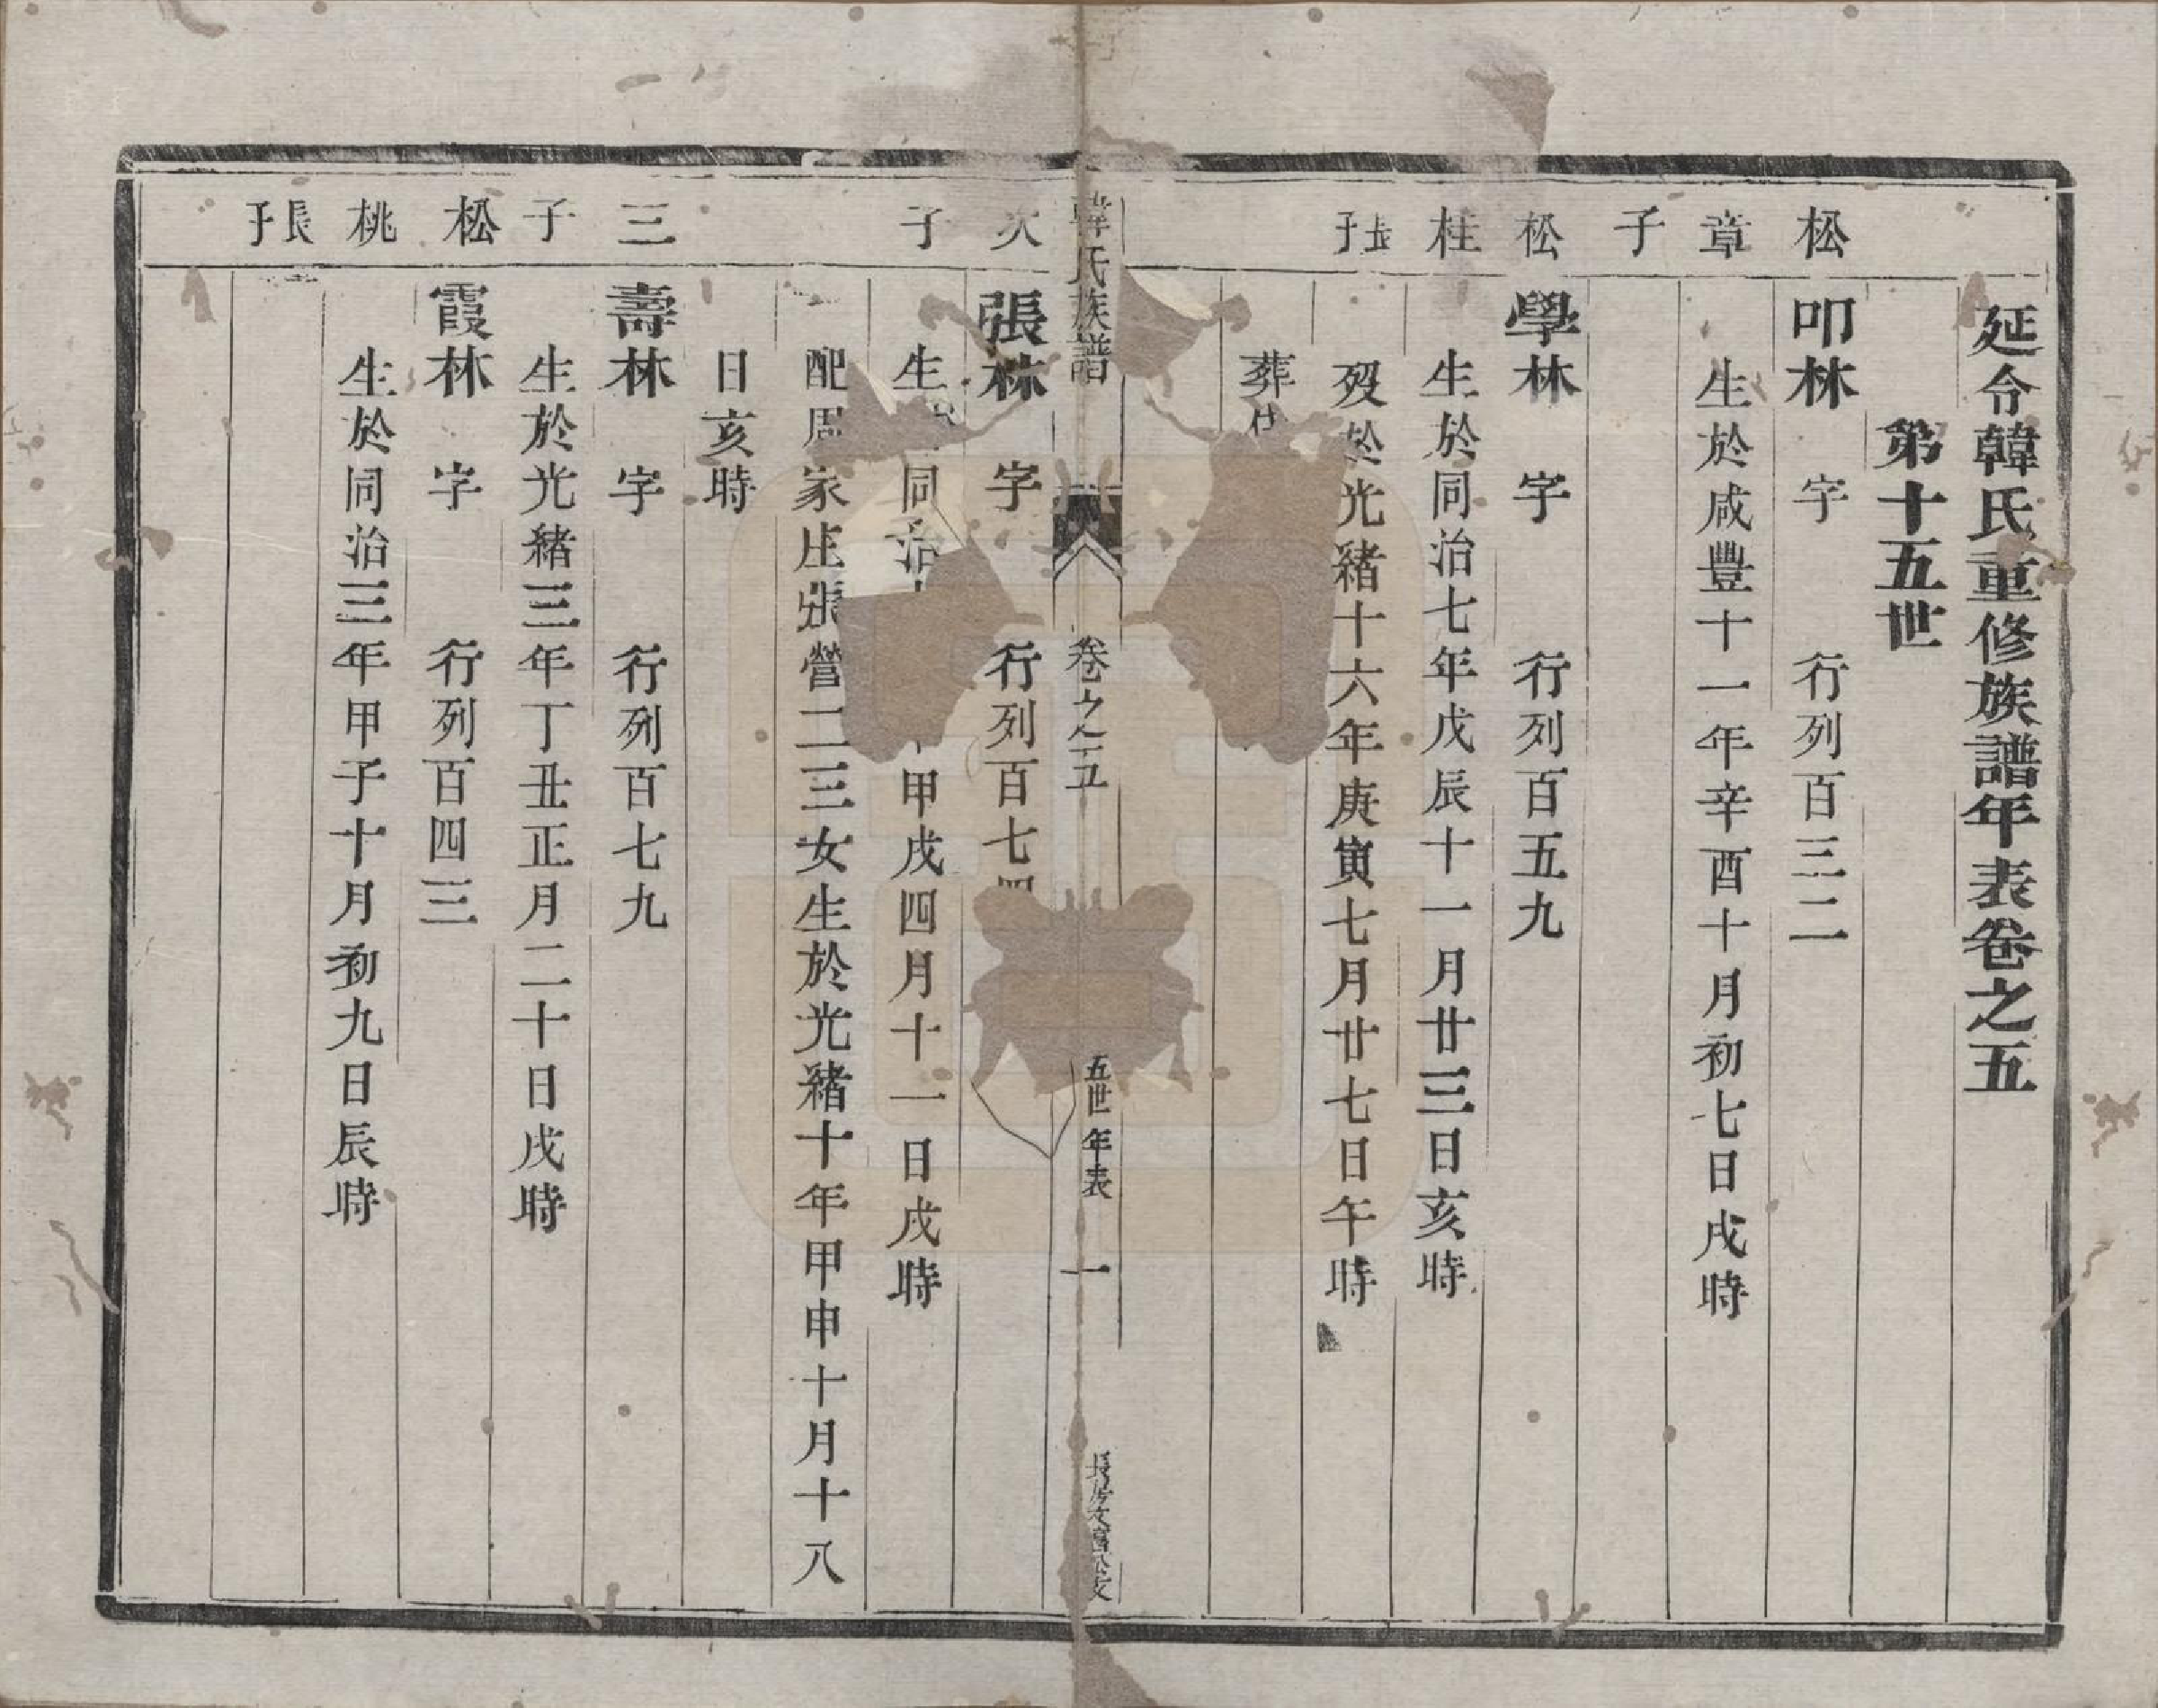 延令韓氏重修族譜年表卷之五
第十五世
松
叩林 字 行列百三二
章
生於咸豐十一年辛酉十月初七日戌時
子
松
學林 字 行列百五九
柱
生於同治七年戊辰十一月廿三日亥時
子
歿於光緒十六年庚寅七月廿七日午時
葬
韓氏族譜 卷之五 五世年表 一
次
張林 字 行列百七
子
生 同治 甲戌四月十一日戌時
配周家庄張營二三女生於光緒十年甲申十月十八
日亥時
三
壽林 字 行列百七九
子
生於光緒三年丁丑正月二十日戌時
松
霞林 字 行列百四三
桃
生於同治三年甲子十月初九日辰時
長子